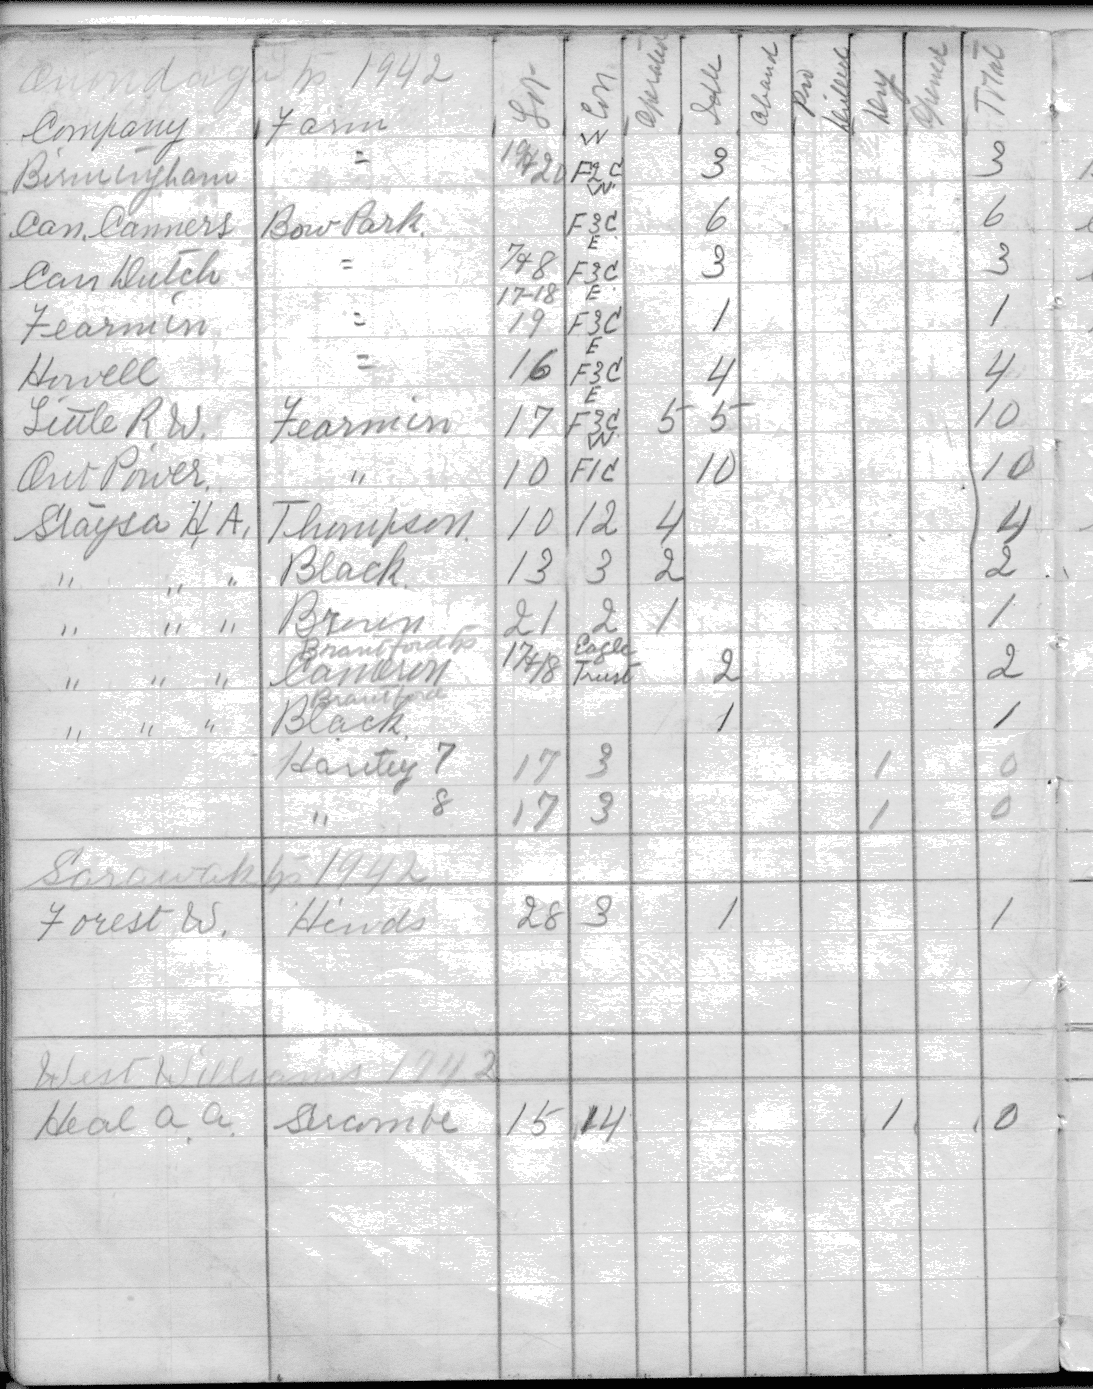 Onondaga tp 1942 Lot Con Operated Idle Aband Pro Drilled Dry Opened Total
Company Farm
Birmingham = 19+20 W F2C 3 3
Can. Canners Bow Park. W F3C 6 6
Can Dutch = 7+8 E F3C 3 3
Fearmin = 17-18 19 E F3C 1 1
Howell = 16 E F3C 4 4
Little R.W. Fearmin 17 E F3C 5 5 10
Ont Power. " 10 W F1C 10 10
Staysa H.A. Thompson. 10 12 4 4
" " " Black. 13 3 2 2
" " " Brown 21 2 1 1
Brantford tp
" " " Cameron 17+18 Eagle Trust 2 2
Brantford
" " " Black. 1 1
7 17 3 1 0
" 8 17 3 1 0
Sarawak tp 1942
Forest W. Hinds 28 3 1 1
West Williams 1942
Heal A. A. Sercombe 15 14 1 0